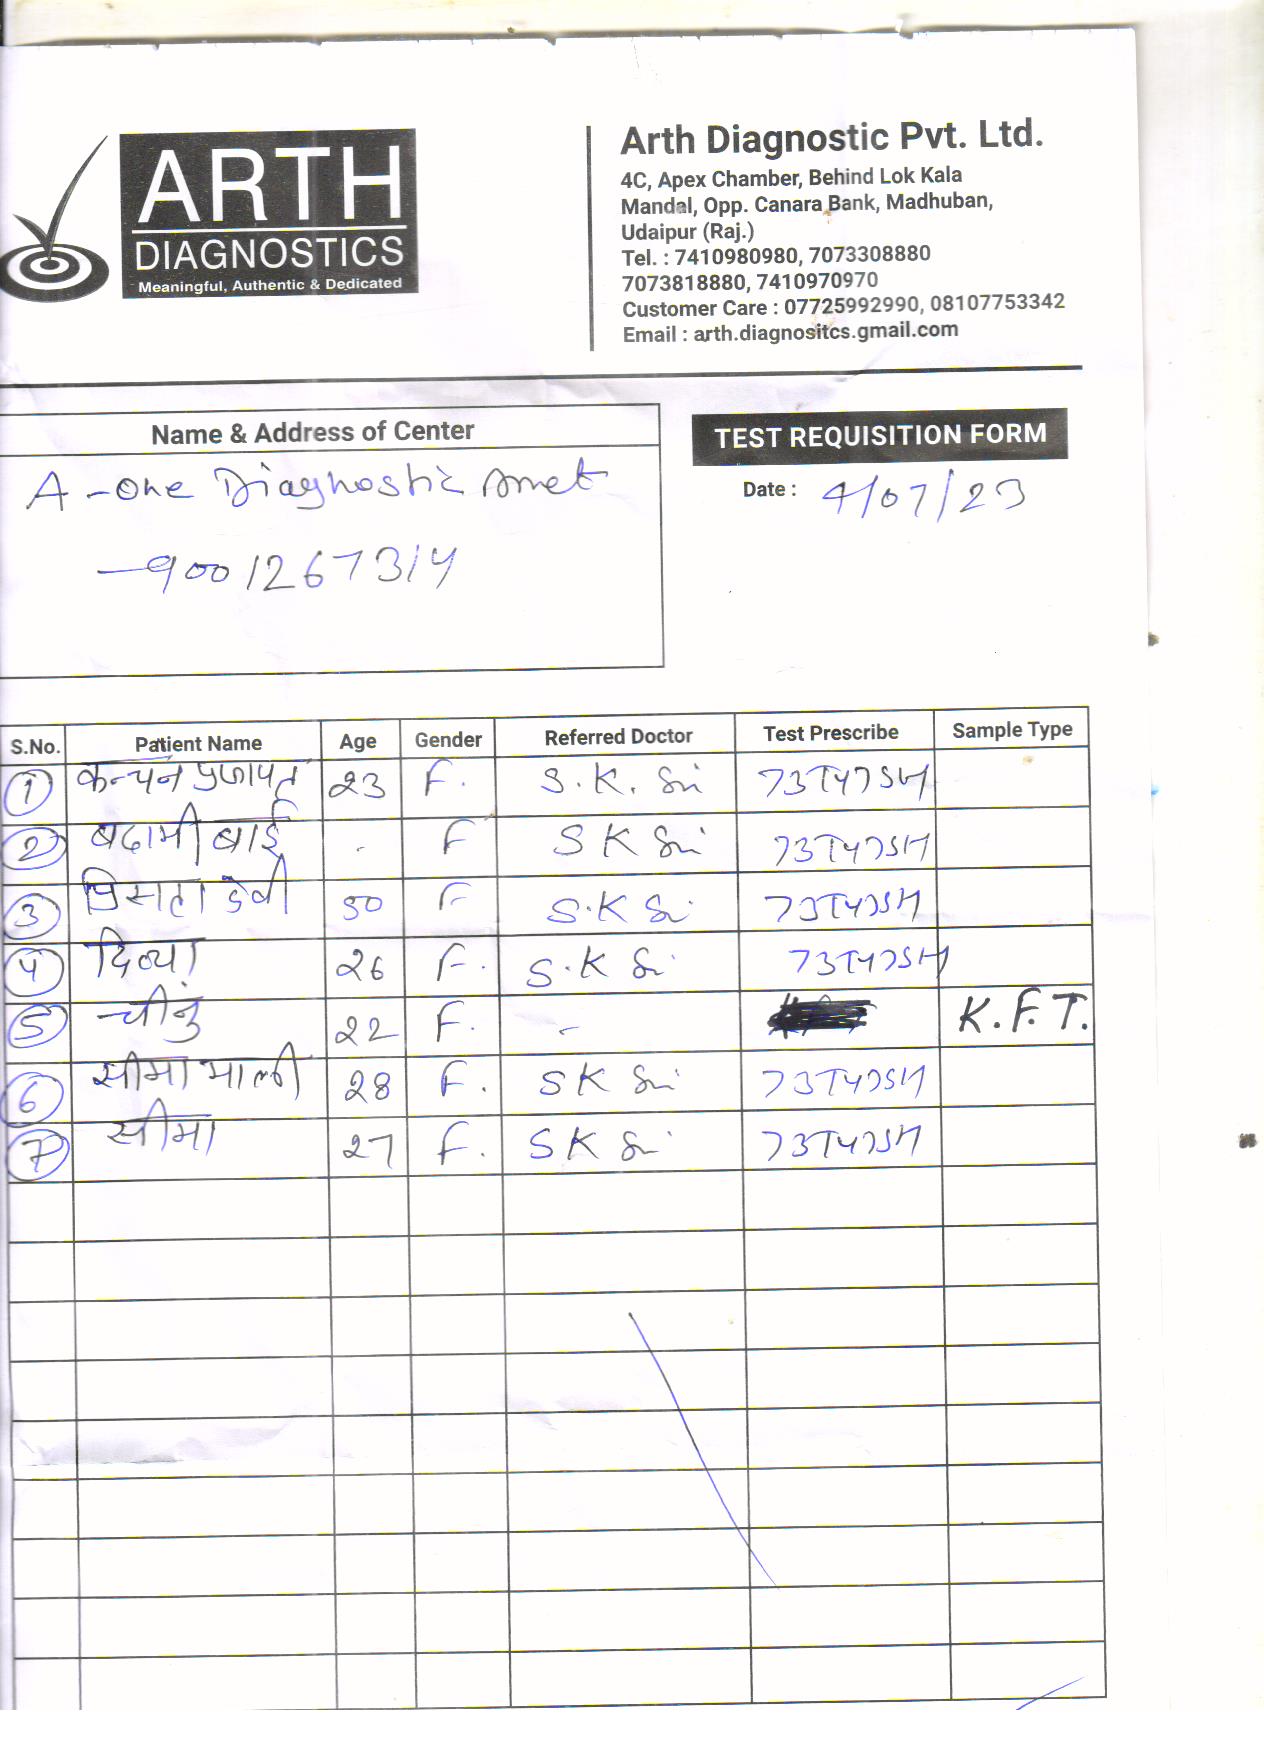 ARTH
DIAGNOSTICS
Meaningful, Authentic & Dedicated
Arth Diagnostic Pvt. Ltd.
4C, Apex Chamber, Behind Lok Kala
Mandal, Opp. Canara Bank, Madhuban,
Udaipur (Raj.)
Tel. : 7410980980, 7073308880
7073818880, 7410970970
Customer Care : 07725992990, 08107753342
Email : arth.diagnositcs.gmail.com
Name & Address of Center
A-one Diagnostic Amet
9001267314
TEST REQUISITION FORM
Date : 4/07/23
S.No. Patient Name Age Gender Referred Doctor Test Prescribe Sample Type
1 कन्चन 23 F. S.K. Sir T3T4TSH
2 बदामी बाई - F S K Sir T3T4TSH
3 देवी 50 F S.K Sir T3T4TSH
4 दिव्या 26 F. S.K Sir T3T4TSH
5 चीनु 22 F. - K.F.T.
6 सीमा माली 28 F. S K Sir T3T4TSH
7 सीमा 27 F. S K Sir T3T4TSH